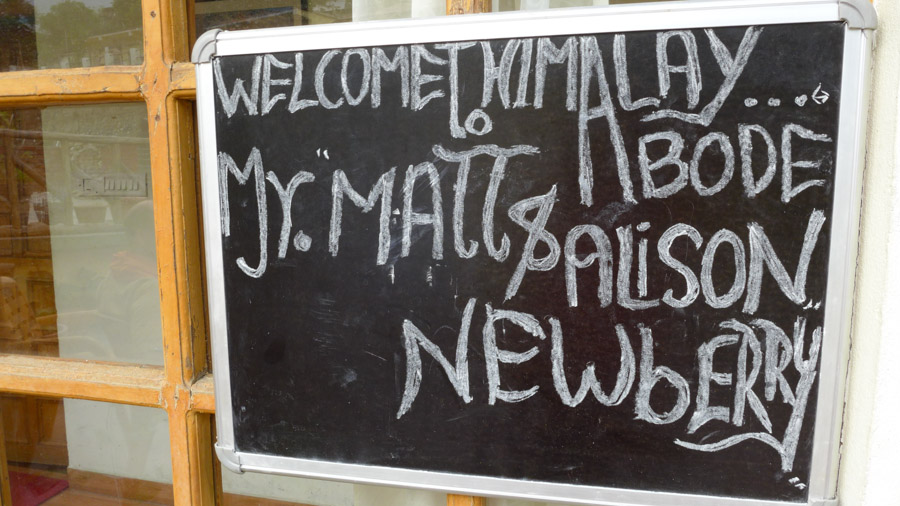 WELCOME To HIMALAY....
ABODE
Mr. "MATT & ALiSON
NEWbERRY"